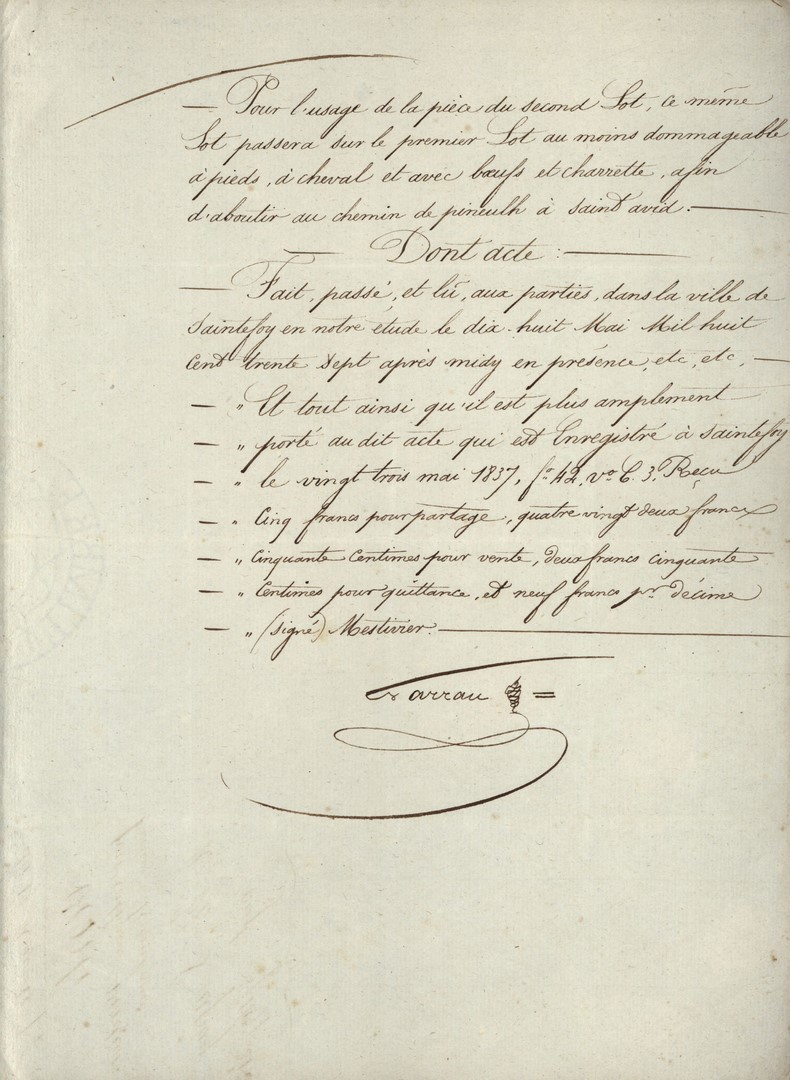 — Pour l'usage de la pièce du second Lot, ce même
Lot passera sur le premier Lot au moins dommageable
à pieds, à cheval et avec bœufs et charrette, afin
d'aboutir au chemin de pineulh à Saint avid. —
— Dont acte : —
— Fait, passé, et lû, aux parties, dans la ville de
Saintefoy en notre étude le dix-huit Mai Mil huit
Cent trente Sept après midy en présence, etc, etc, —
— " Et tout ainsi qu'il est plus amplement
— " porté au dit acte qui est Enregistré à Saintefoy
— " le vingt trois mai 1837, fo. 42, vo. C. 3. Reçu
— " Cinq francs pour partage, quatre vingt deux francs
— " Cinquante Centimes pour vente, deux francs cinquante
— " Centimes pour quittance, et neuf francs pr. décime
— " (Signé) Mestivier. —